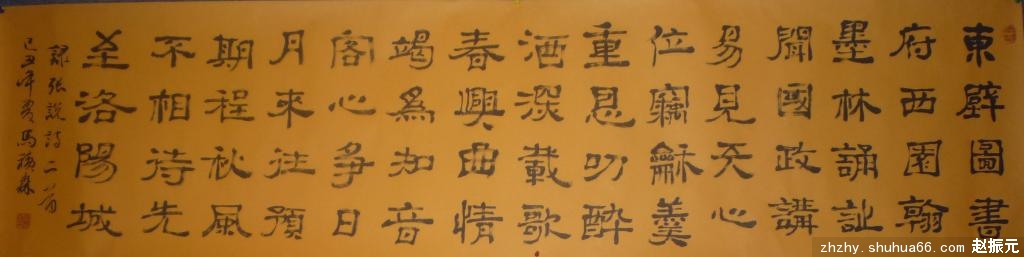 東壁圖書
府西園翰
墨林誦詩
聞國政講
易見天心
位竊龢羹
重恩叨醉
酒深載歌
春興曲情
竭為知音
客心爭日
月來往預
期程秋風
不相待先
至洛陽城
錄張說詩二首
己丑年夏馬森
zhzhy.shuhua66.com 赵振元